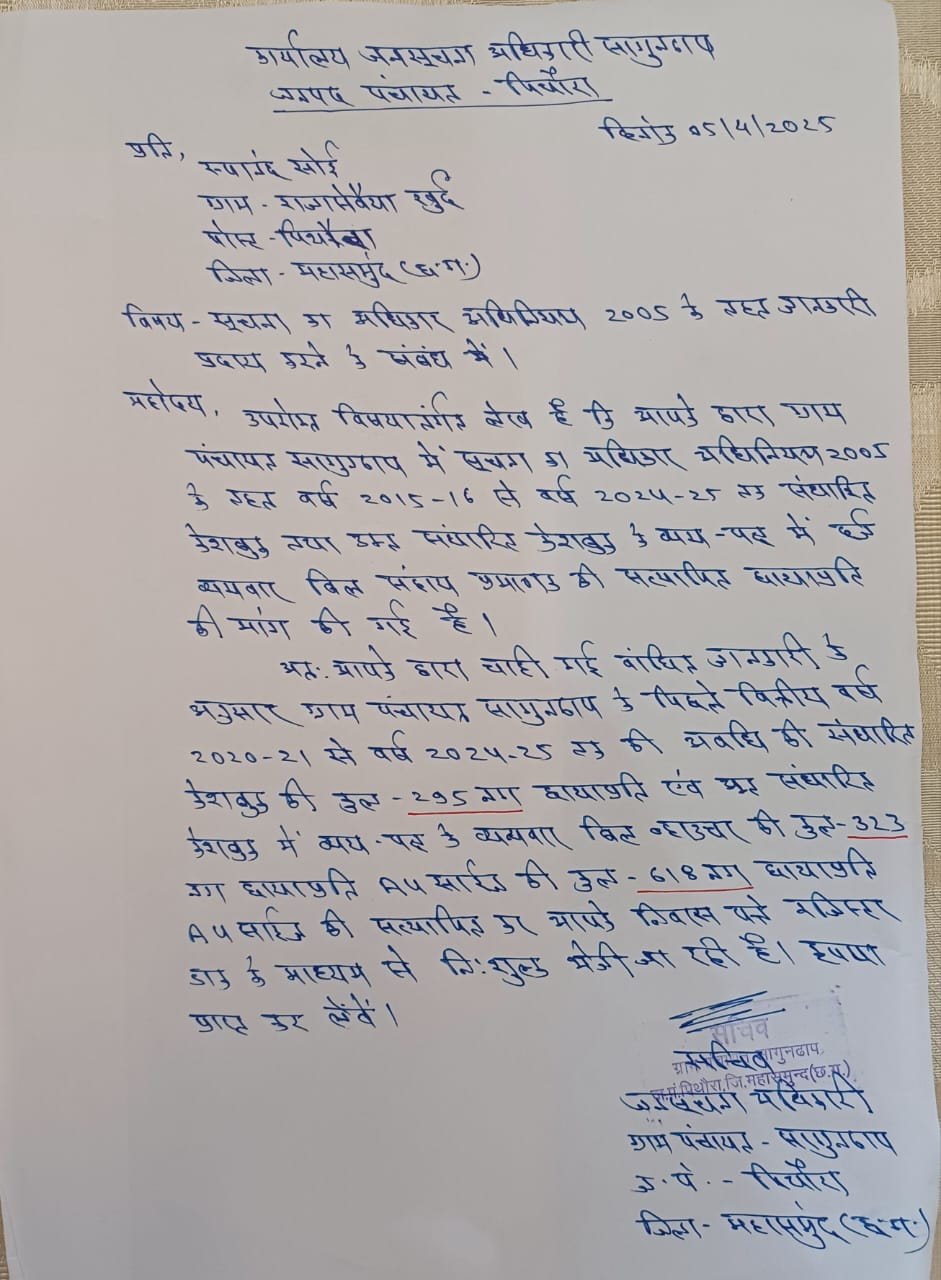 कार्यालय जनसूचना अधिकारी सागुनढाप
जनपद पंचायत - पिथौरा
दिनांक 05/4/2025
प्रति,
ग्राम - राजासेवैया खुर्द
पोस्ट - पिथौरा
जिला - महासमुंद (छ.ग.)
विषय - सूचना का अधिकार अधिनियम 2005 के तहत जानकारी
प्रदाय करने के संबंध में।
महोदय, उपरोक्त विषयान्तर्गत लेख है कि आपके द्वारा ग्राम
पंचायत सागुनढाप में सूचना का अधिकार अधिनियम 2005
के तहत वर्ष 2015-16 से वर्ष 2024-25 तक संधारित
केशबुक तथा उक्त संधारित केशबुक के व्यय-पक्ष में दर्ज
व्ययवार बिल संदाय प्रमाणक की सत्यापित छायाप्रति
की मांग की गई है।
अतः आपके द्वारा चाही गई वांछित जानकारी के
अनुसार ग्राम पंचायत सागुनढाप के पिछले वित्तीय वर्ष
2020-21 से वर्ष 2024-25 तक की अवधि की संधारित
केशबुक की कुल - 295 नग छायाप्रति एवं संधारित
केशबुक में व्यय-पक्ष के व्ययवार बिल व्हाउचर की कुल - 323
नग छायाप्रति A4 साईज की कुल - 618 नग छायाप्रति
A4 साईज की सत्यापित कर आपके निवास पते रजिस्टर
डाक के माध्यम से नि:शुल्क भेजी जा रही है। कृपया
प्राप्त कर लेंवें।
सचिव
सचिव
ग्राम सागुनढाप,
ज.पं.पिथौरा,जि.महासमुन्द(छ.ग.)
जनसूचना अधिकारी
ग्राम पंचायत - सागुनढाप
ज.पं. - पिथौरा
जिला - महासमुंद (छ.ग.)